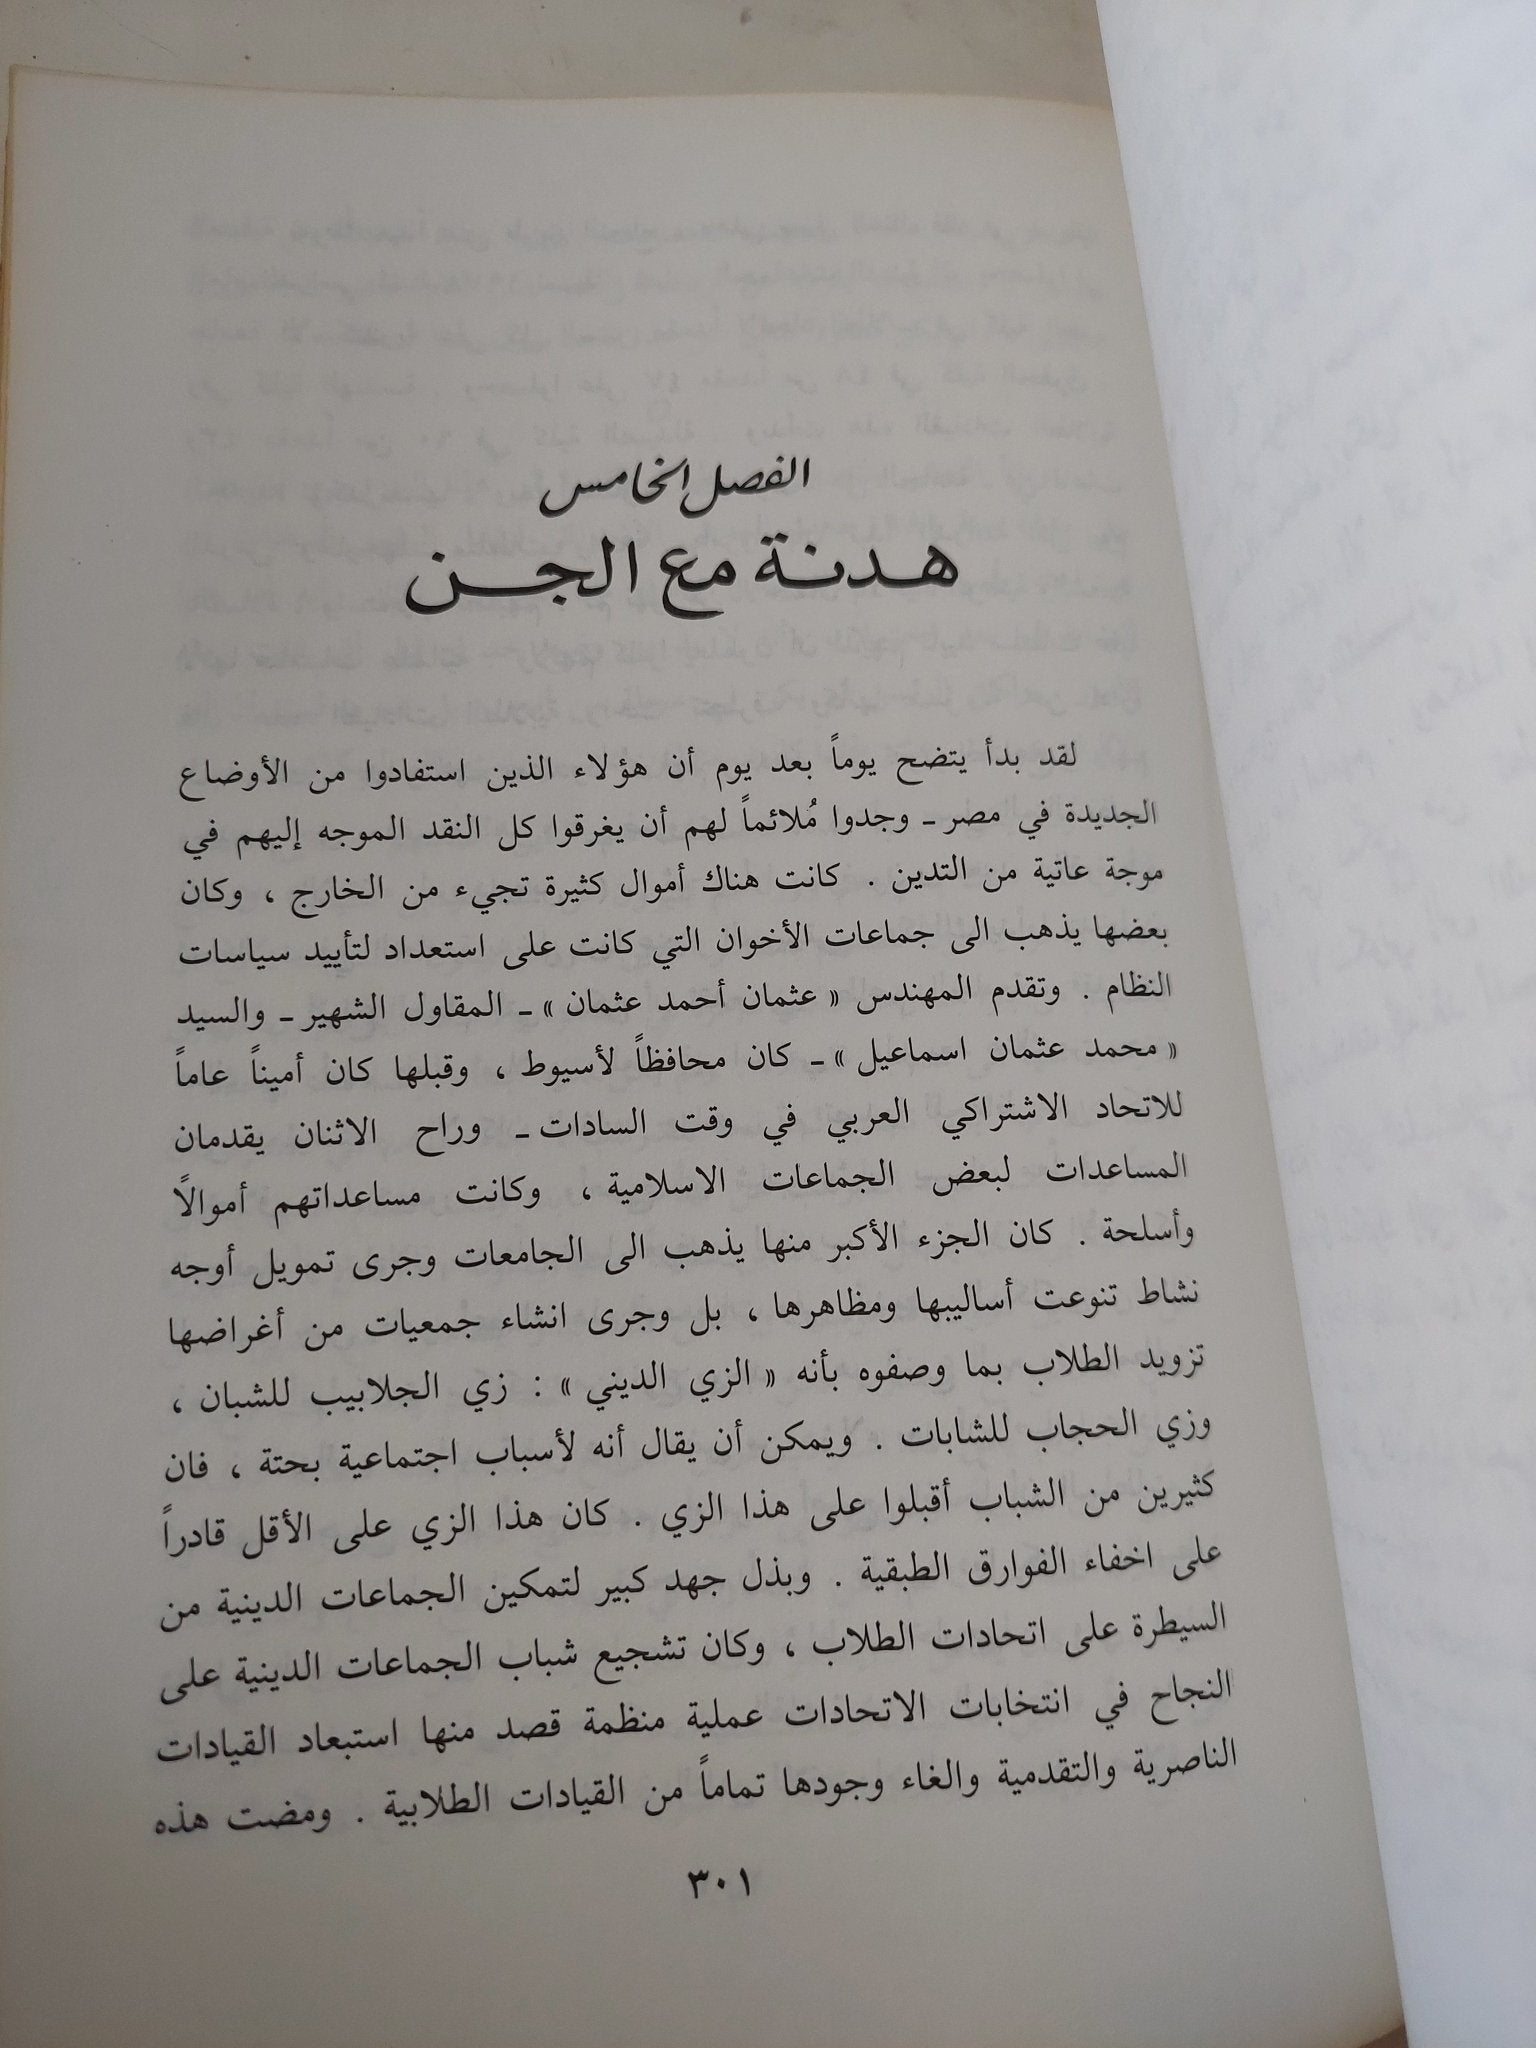 الفصل الخامس
هدنة مع الجن
لقد بدأ يتضح يوماً بعد يوم أن هؤلاء الذين استفادوا من الأوضاع
الجديدة في مصر ـ وجدوا مُلائماً لهم أن يغرقوا كل النقد الموجه إليهم في
موجة عاتية من التدين . كانت هناك أموال كثيرة تجيء من الخارج ، وكان
بعضها يذهب الى جماعات الأخوان التي كانت على استعداد لتأييد سياسات
النظام . وتقدم المهندس « عثمان أحمد عثمان » ـ المقاول الشهير ـ والسيد
« محمد عثمان اسماعيل » ـ كان محافظاً لأسيوط ، وقبلها كان أميناً عاماً
للاتحاد الاشتراكي العربي في وقت السادات ـ وراح الاثنان يقدمان
المساعدات لبعض الجماعات الاسلامية ، وكانت مساعداتهم أموالًا
وأسلحة . كان الجزء الأكبر منها يذهب الى الجامعات وجرى تمويل أوجه
نشاط تنوعت أساليبها ومظاهرها ، بل وجرى انشاء جمعيات من أغراضها
تزويد الطلاب بما وصفوه بأنه « الزي الديني » : زي الجلابيب للشبان ،
وزي الحجاب للشابات . ويمكن أن يقال أنه لأسباب اجتماعية بحتة ، فان
كثيرين من الشباب أقبلوا على هذا الزي . كان هذا الزي على الأقل قادراً
على اخفاء الفوارق الطبقية . وبذل جهد كبير لتمكين الجماعات الدينية من
السيطرة على اتحادات الطلاب ، وكان تشجيع شباب الجماعات الدينية على
النجاح في انتخابات الاتحادات عملية منظمة قصد منها استبعاد القيادات
الناصرية والتقدمية والغاء وجودها تماماً من القيادات الطلابية . ومضت هذه
٣٠١